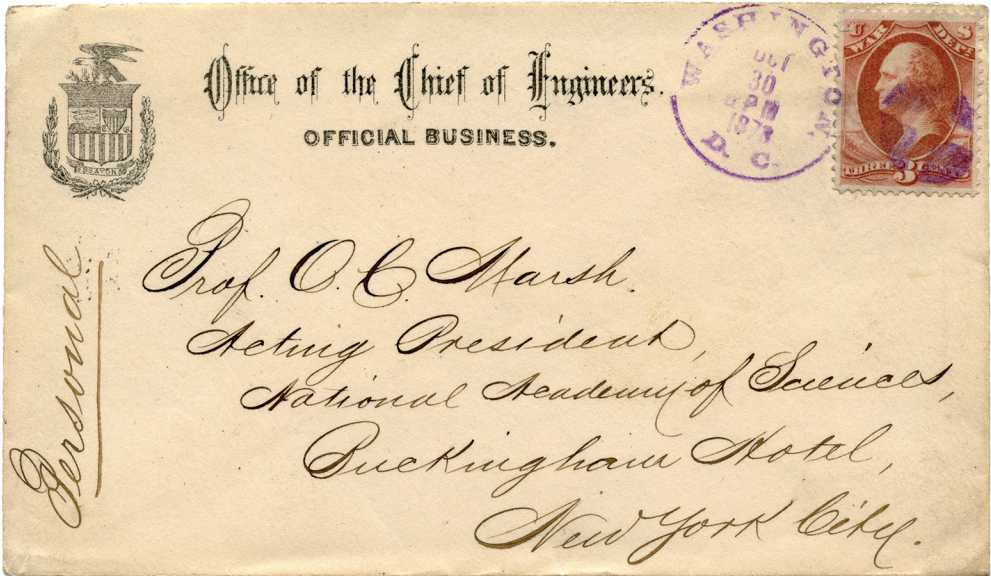 Office of the Chief of Engineers.
OFFICIAL BUSINESS.
ESSAYONS
WASHINGTON
OCT
30
PM
D. C.
U S
WAR DEPT.
THREE 3 CENTS
Personal
Prof. O. C. Marsh.
Acting President,
National Academy of Sciences,
Buckingham Hotel,
New York City.